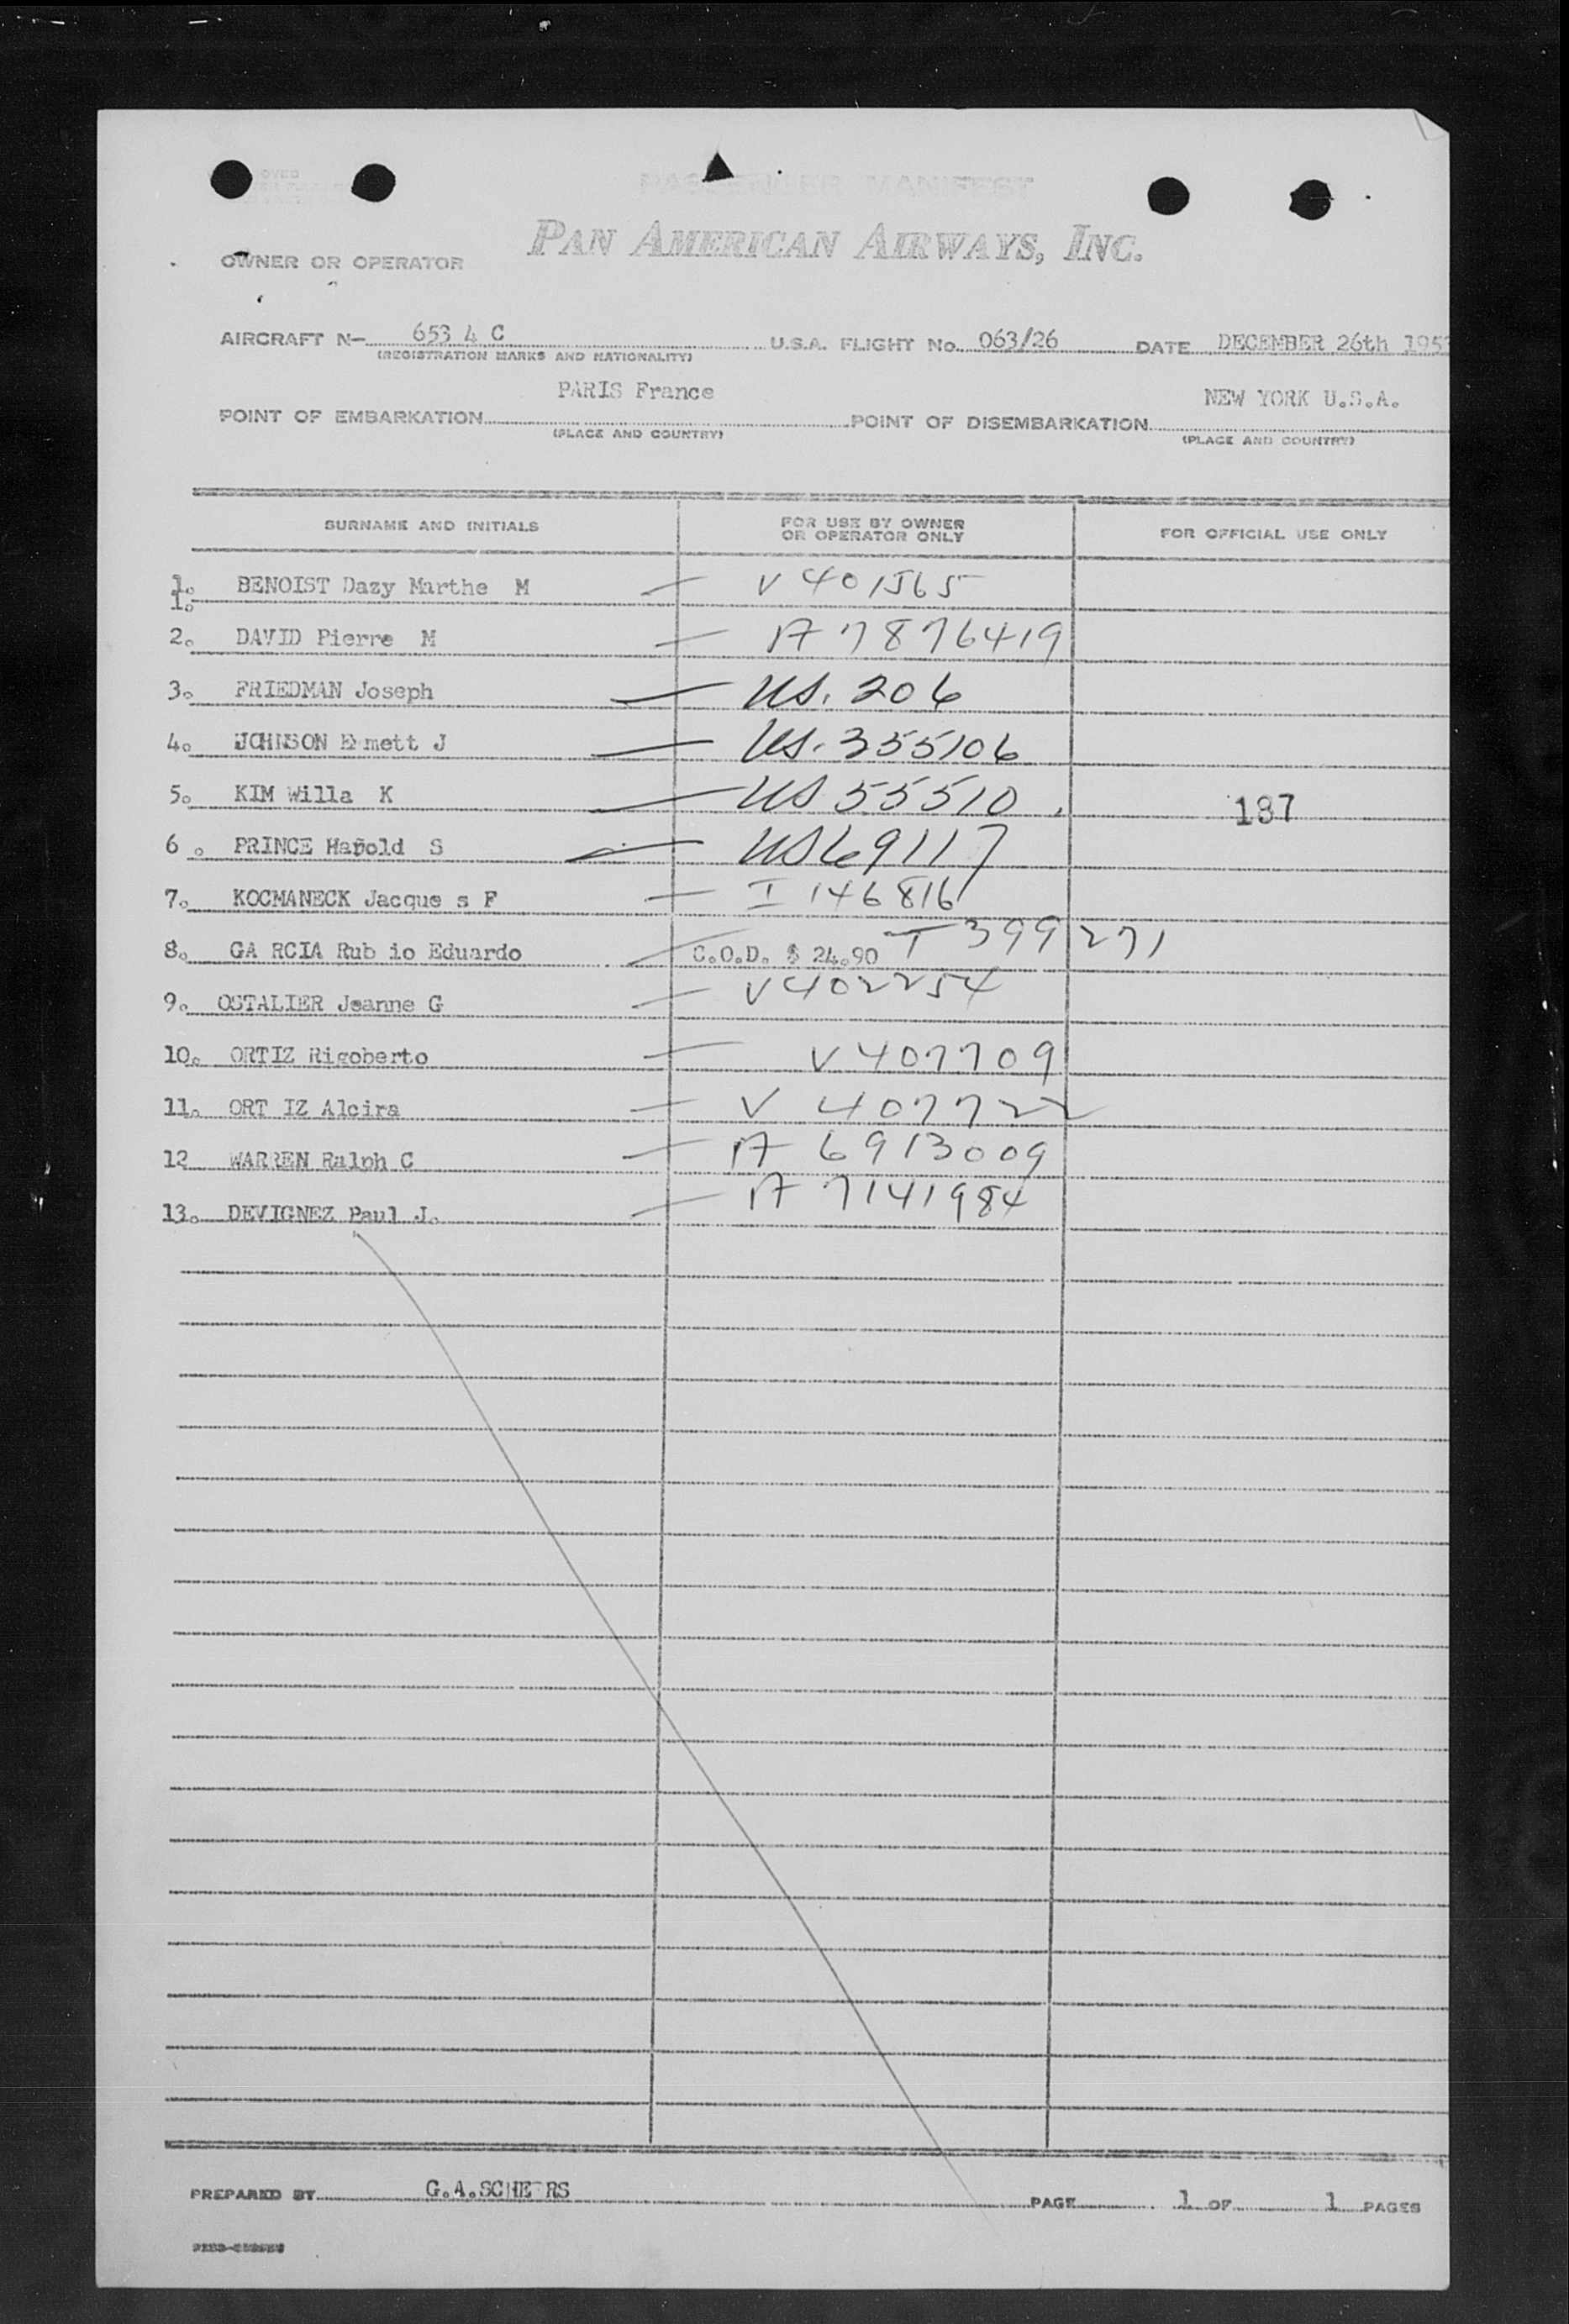 PASSENGER MANIFEST
PAN AMERICAN AIRWAYS, INC.
OWNER OR OPERATOR
AIRCRAFT N- 653 4 C U.S.A. FLIGHT NO. 063/26 DATE DECEMBER 26th 195
(REGISTRATION MARKS AND NATIONALITY)
PARIS France NEW YORK U.S.A.
POINT OF EMBARKATION POINT OF DISEMBARKATION
(PLACE AND COUNTRY) (PLACE AND COUNTRY)
SURNAME AND INITIALS FOR USE BY OWNER OR OPERATOR ONLY FOR OFFICIAL USE ONLY
1. BENOIST Dazy Marthe M — V 401565
1.
2. DAVID Pierre M — A 7876419
3. FRIEDMAN Joseph — US. 206
4. JOHNSON Emmett J — US. 355106
5. KIM Willa K — US 55510 187
6 . PRINCE Harold S — US 69117
7. KOCMANECK Jacque s F — I 146816
8. GA RCIA Rub io Eduardo — C.O.D. $ 24.90 T 399271
9. OSTALIER Jeanne G — V402254
10. ORTIZ Rigoberto — V 407709
11. ORT IZ Alcira — V 407722
12 WARREN Ralph C — A 6913009
13. DEVIGNEZ Paul J. — A 7141984
PREPARED BY G.A.SCHEERS PAGE 1 OF 1 PAGES